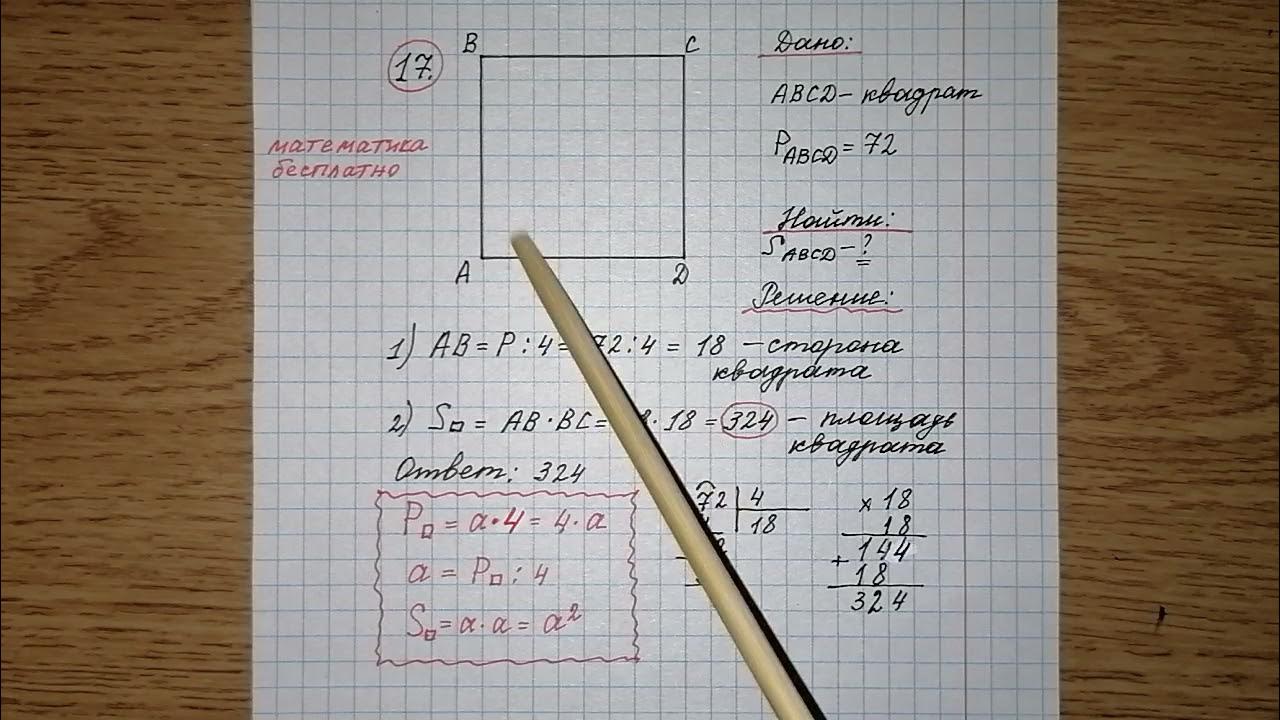 17.
B
C
A
D
математика
бесплатно
Дано:
ABCD – квадрат
P ABCD = 72
Найти:
S ABCD – ?
Решение:
1) AB = P : 4 = 72 : 4 = 18 – сторона
квадрата
2) S□ = AB · BC = 8 · 18 = 324 – площадь
квадрата
Ответ: 324
P□ = a · 4 = 4 · a
a = P□ : 4
S□ = a · a = a²
72 | 4
18
× 18
18
+ 144
18
324